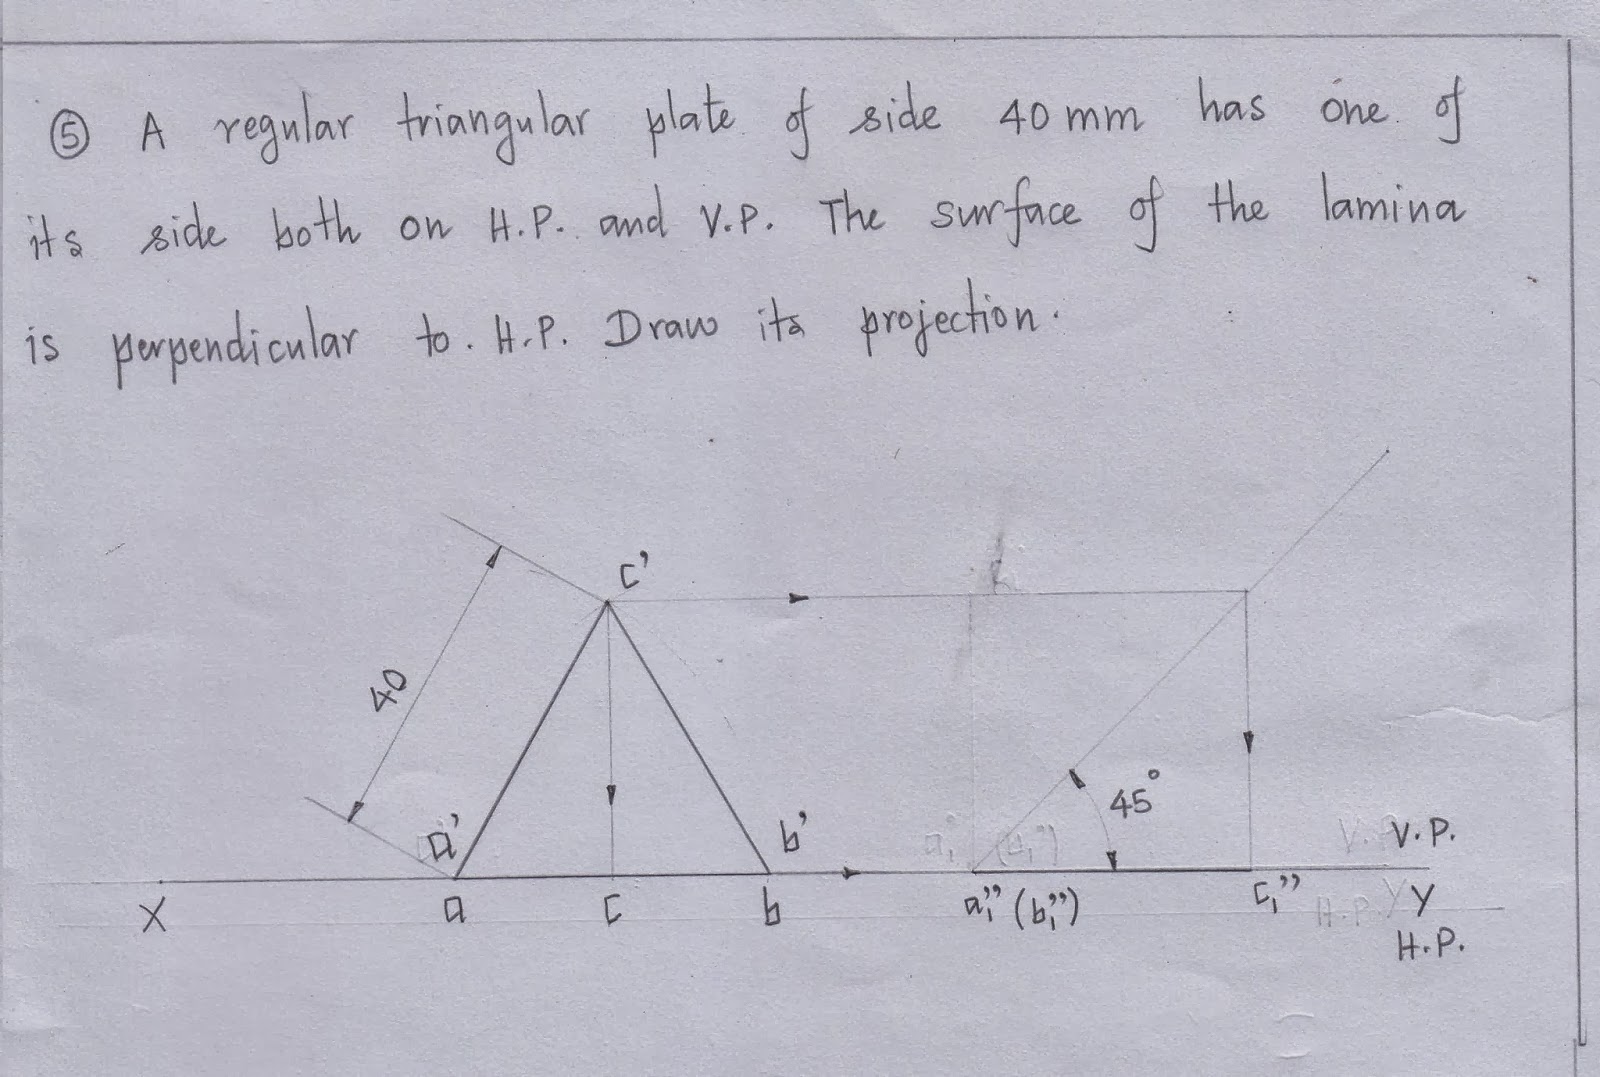 ⑤ A regular triangular plate of side 40 mm has one of
its side both on H.P. and V.P. The surface of the lamina
is perpendicular to H.P. Draw its projection.
c'
40
45°
a' b' V.P.
X a c b a₁'' (b₁'') c₁'' Y
H.P.